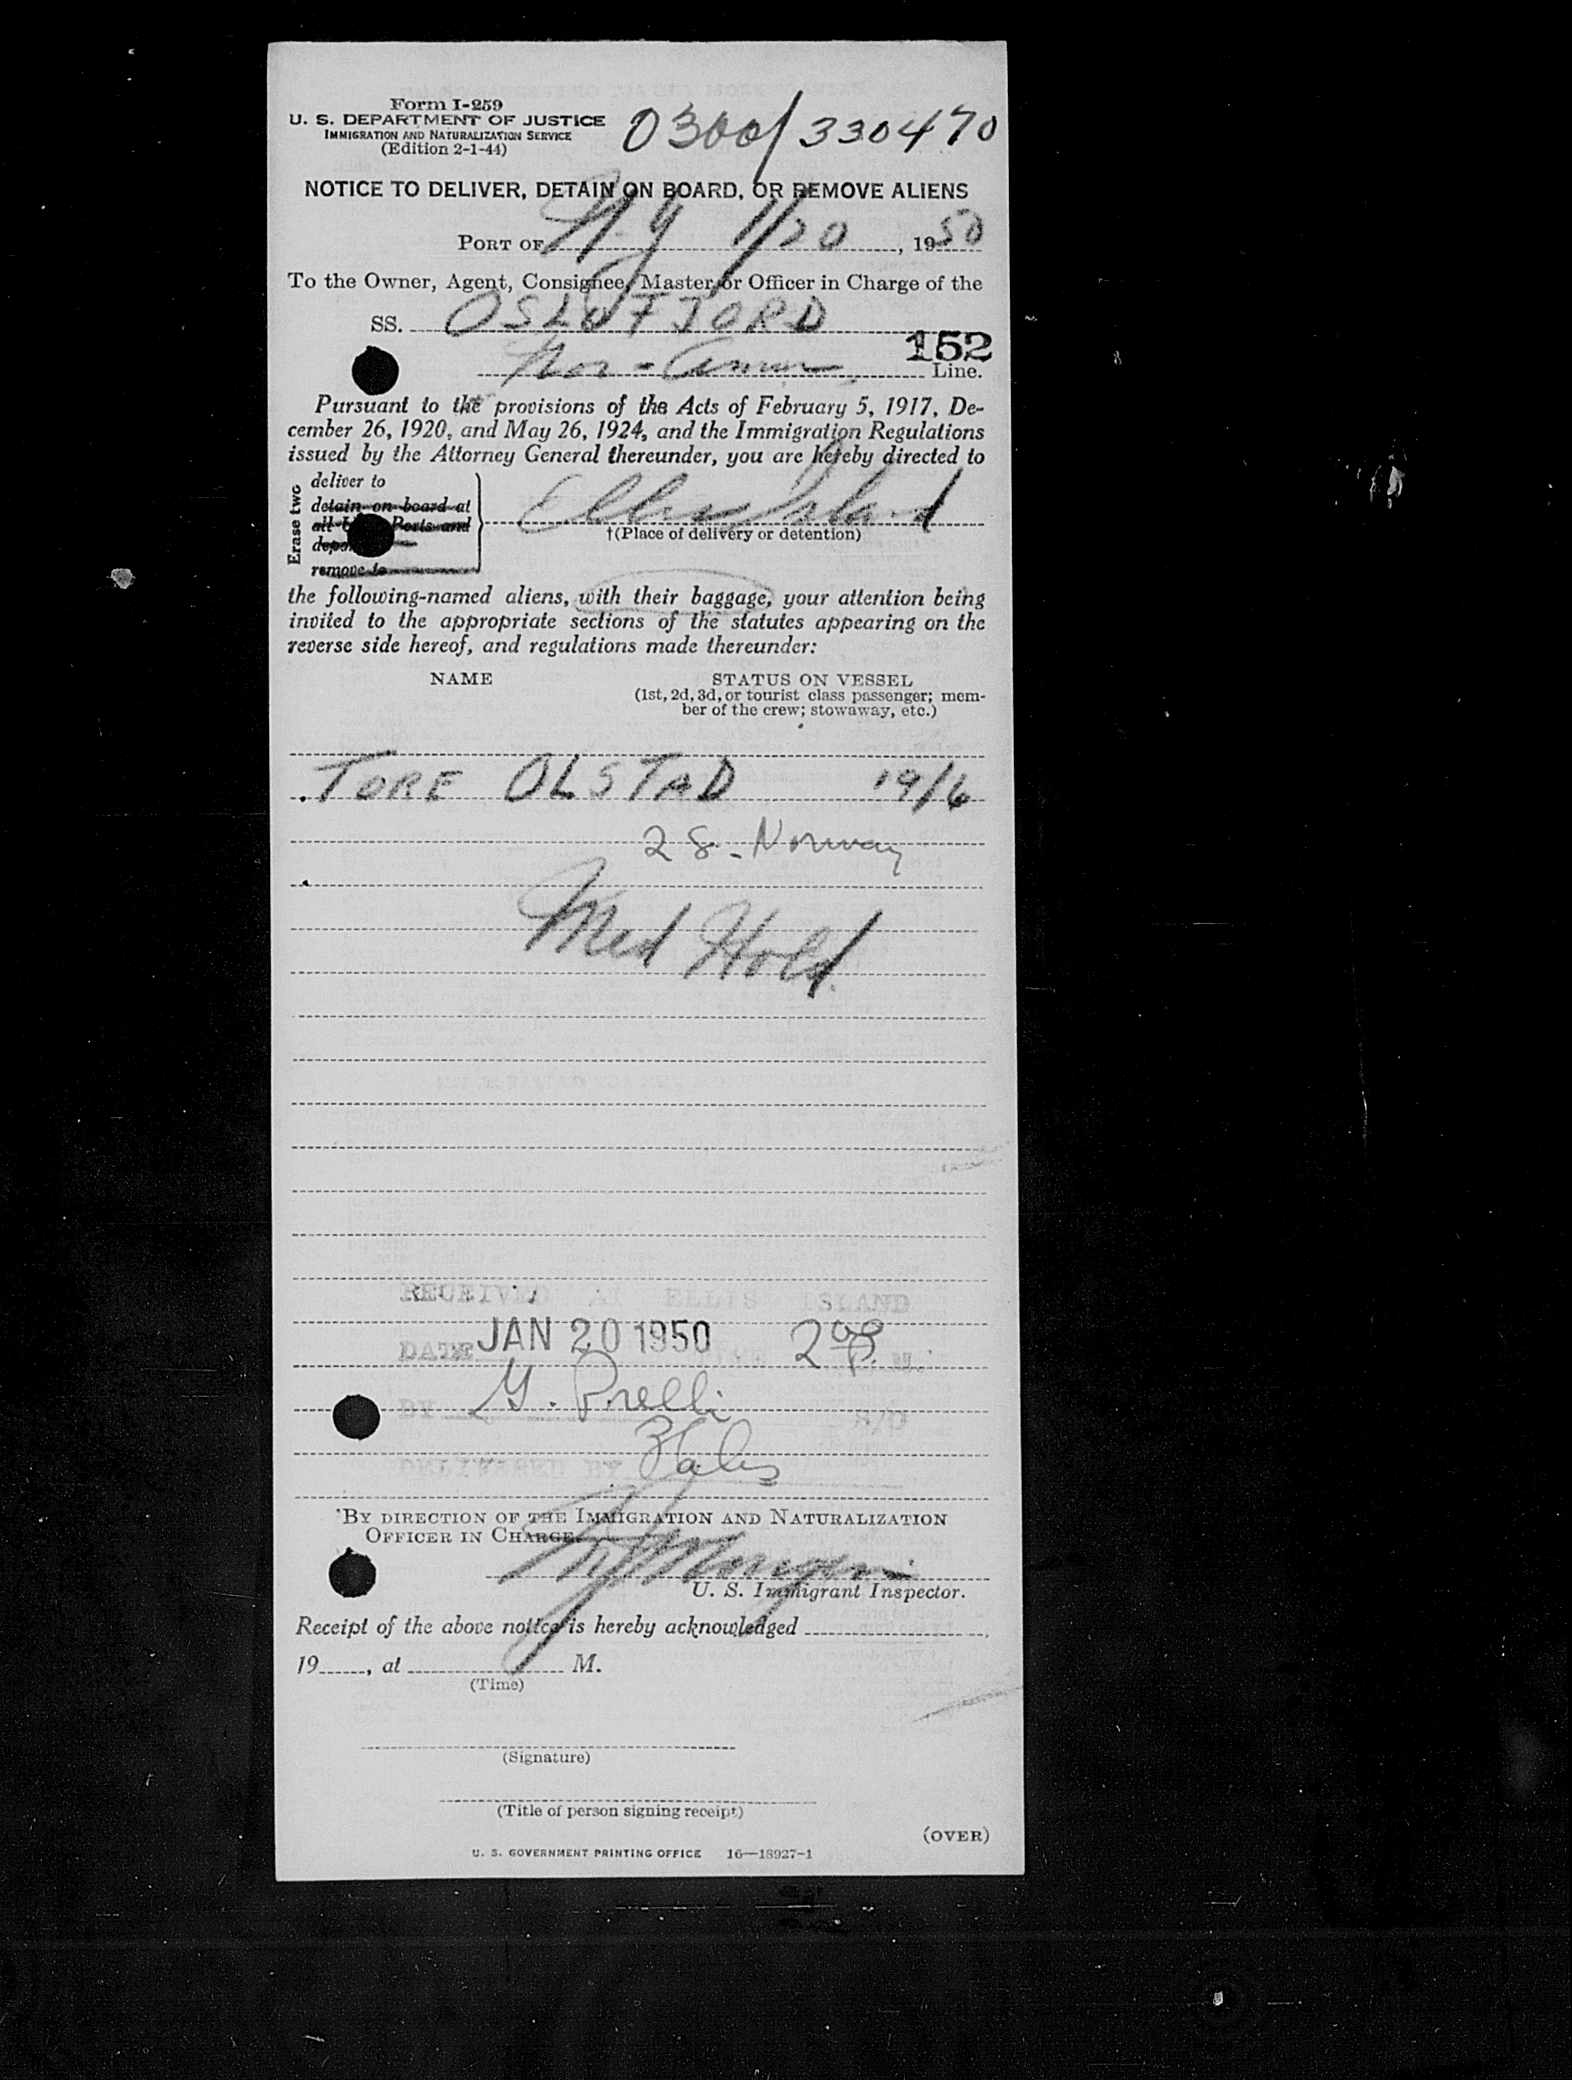 Form I-259
U. S. DEPARTMENT OF JUSTICE
IMMIGRATION AND NATURALIZATION SERVICE
(Edition 2-1-44)
0300/330470
NOTICE TO DELIVER, DETAIN ON BOARD, OR REMOVE ALIENS
PORT OF N.Y 1/20, 1950
To the Owner, Agent, Consignee, Master, or Officer in Charge of the
SS. OSLOFJORD
152
Nor-Amer Line.
Pursuant to the provisions of the Acts of February 5, 1917, De-
cember 26, 1920, and May 26, 1924, and the Immigration Regulations
issued by the Attorney General thereunder, you are hereby directed to
Erase two
deliver to
detain on board at
all U. Ports and
remove to
Ellis Island
†(Place of delivery or detention)
the following-named aliens, with their baggage, your attention being
invited to the appropriate sections of the statutes appearing on the
reverse side hereof, and regulations made thereunder:
NAME STATUS ON VESSEL
(1st, 2d, 3d, or tourist class passenger; mem-
ber of the crew; stowaway, etc.)
TORE OLSTAD 19/6
28-Norway
Med Hold
RECEIVED AT ELLIS ISLAND
DATE JAN 20 1950 2 00 P. M.
BY S/O
DELIVERED BY
BY DIRECTION OF THE IMMIGRATION AND NATURALIZATION
OFFICER IN CHARGE.
U. S. Immigrant Inspector.
Receipt of the above notice is hereby acknowledged
19, at M.
(Time)
(Signature)
(Title of person signing receipt)
(OVER)
U. S. GOVERNMENT PRINTING OFFICE 16—18927-1